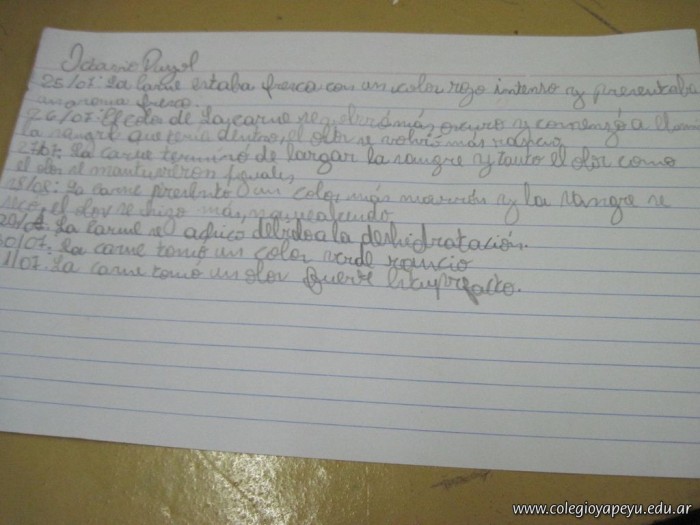 Octavio Puyol
25/07: La carne estaba fresca con un color rojo intenso y presentaba
un aroma fresco.
26/07: El color de la carne se volvió más oscuro y comenzó a
la sangre que tenía dentro, el olor se volvió más rancio
27/07: La carne terminó de largar la sangre y tanto el olor como
el olor se mantuvieron iguales
La carne presentó un color más marrón y la sangre se
seco, el olor se hizo más
La carne se achico debido a la deshidratación.
0/07: La carne tomó un color verde rancio
1/07: La carne tomó un olor fuerte
www.colegioyapeyu.edu.ar